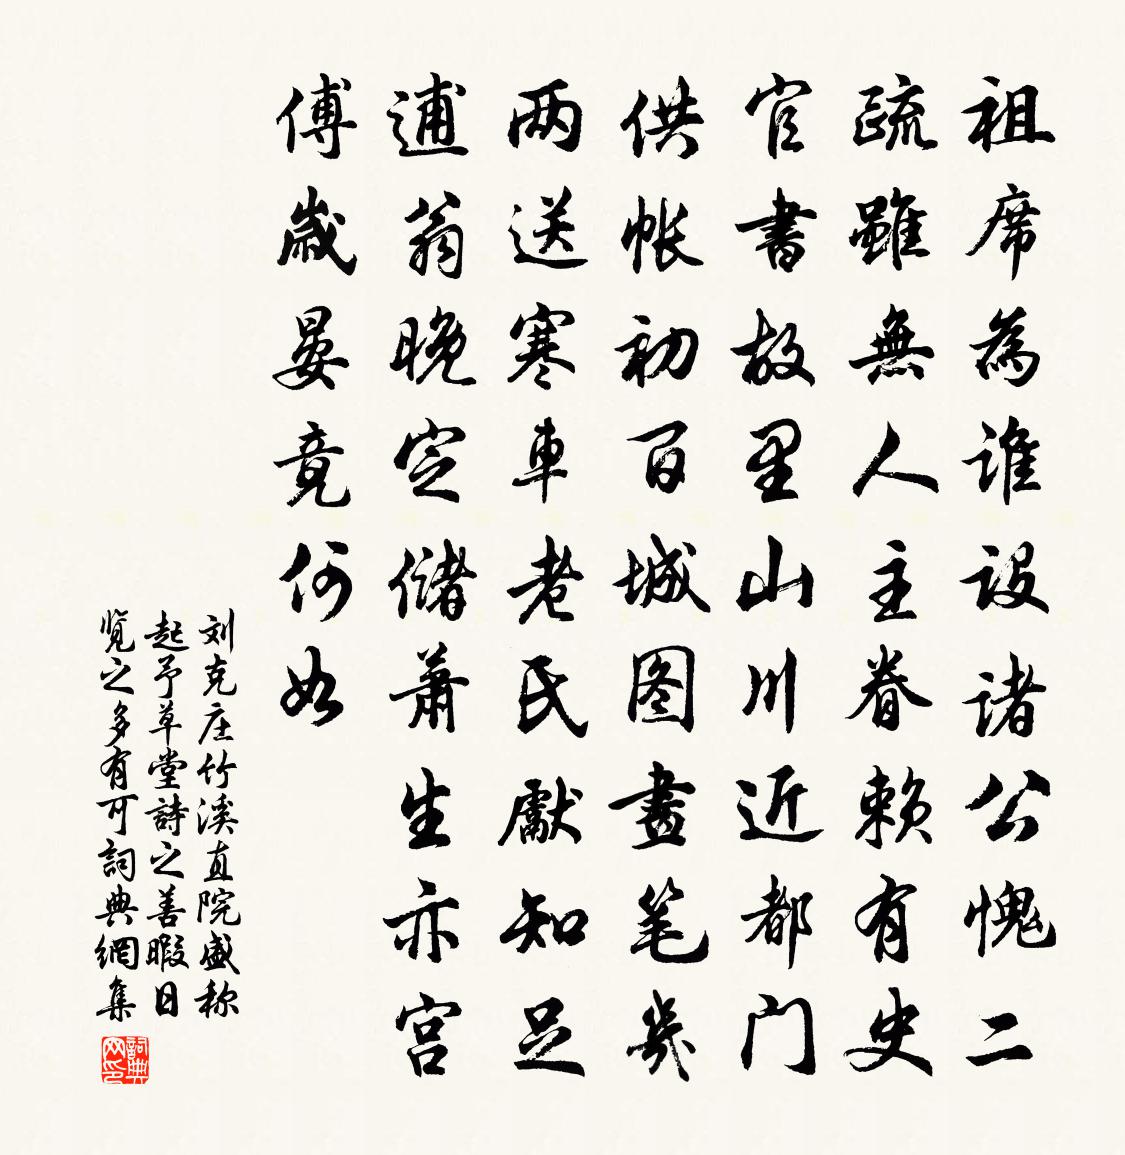 祖席為谁設诸公愧二
疏雖無人主眷赖有史
官書故里山川近都门
供帐初百城图畫笔幾
两送寒車老民獻知足
逋翁晚定儲萧生亦宫
傅歲晏竟何如
刘克庄竹溪直院盛称
起予草堂詩之善暇日
览之多有可詞典網集
詞典
网印